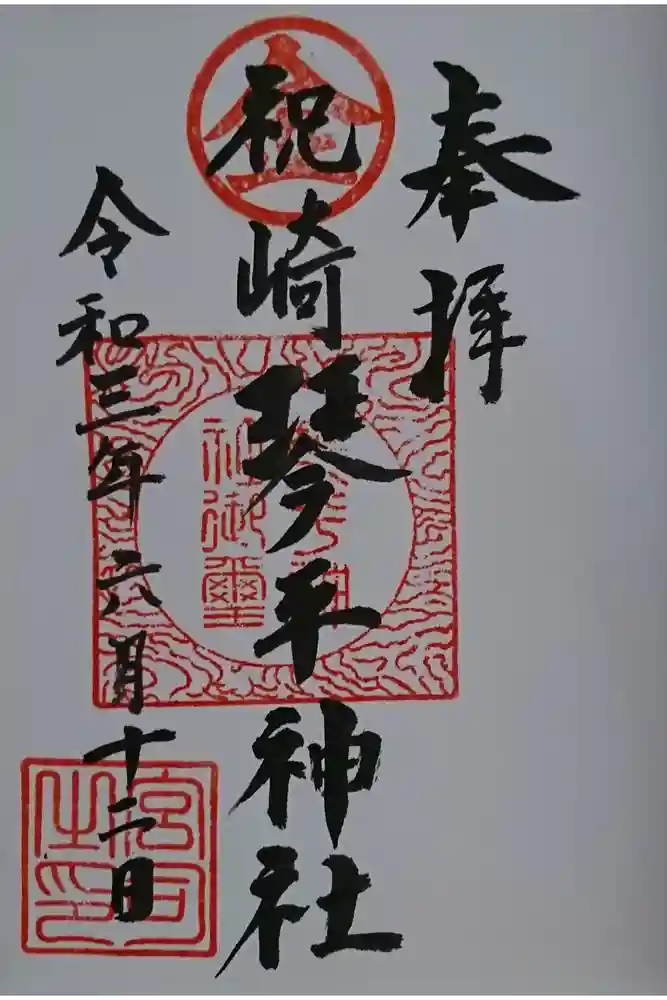 奉拝
祝崎琴平神社
令和三年六月十二日
金
社御璽
宮司之印